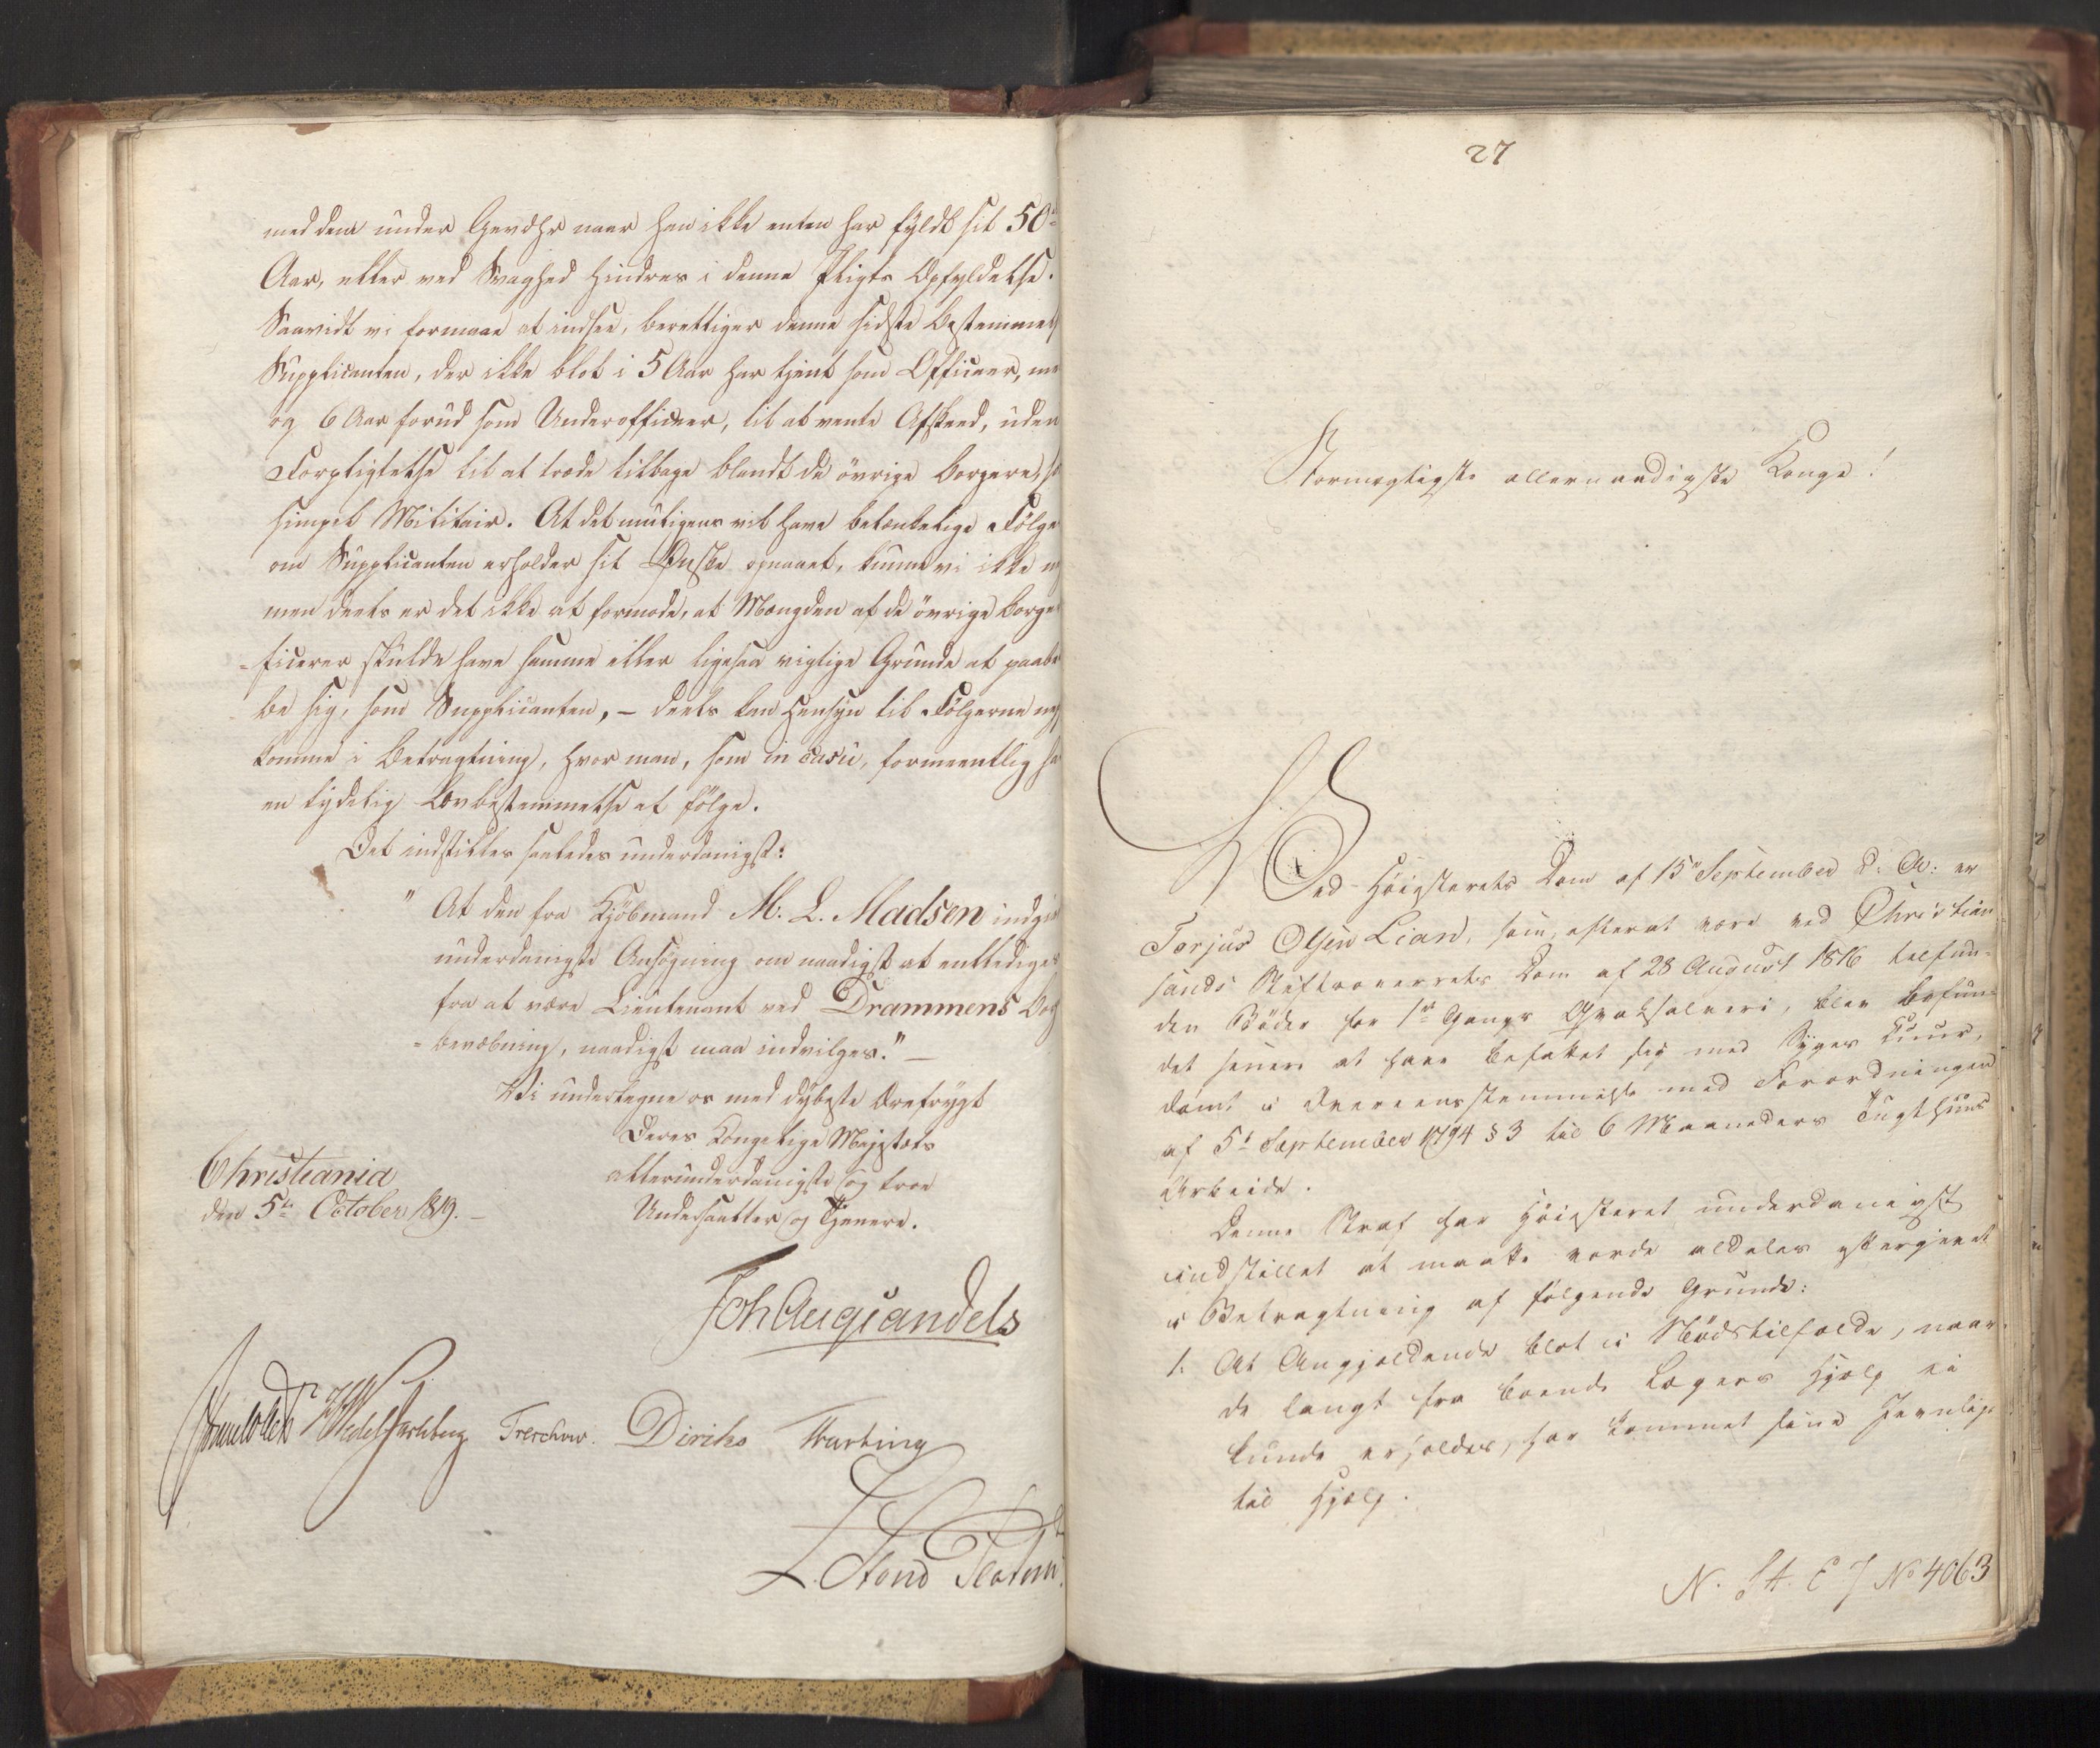 med dem under Gevæhr naar han ikke enten har fyldt sit 50de
Aar, eller ved Svaghed hindres i denne Pligts Opfyldelse.
Saavidt vi formaae at indsee, berettiger denne sidste Bestemmels
Supplicanten, der ikke blot i 5 Aar har tjent som Officeer, me
og 6 Aar forud som Underofficeer, til at vente Afskeed, uden
Forpligtelse til at træde tilbage blandt de övrige Borgere, so
simpel Militair. At det muligens vil have betænkelige Fölge
om Supplicanten erholder sit Önske opnaaet, kunne vi ikke
men deels er det ikke at formode, at Mængden af de övrige Borge
=ficerer skulde have samme eller ligesaa vigtige Grunde at paabe
be sig, som Supplicanten, – deels kan Hensyn til Fölgerne
komme i Betragtning, hvor man, som in casu, formeentlig ha
en tydelig Lovbestemmelse at fölge.
Det indstilles saaledes underdanigst:
" At den fra Kjöbmand M. L. Madsen indgi
underdanigste Ansögning om naadigst at entlediges
fra at være Lieutenant ved Drammens Bor
=bevæbning, naadigst maa indvilges." —
Vi undertegne os med dybeste Ærefrygt
Deres Kongelige Majestæts
allerunderdanigste og troe
Undersaatter og Tjenere.
Christiania
den 5te October 1819. —
Joh Aug Sandels
Sommerhielm Wedel Jarlsberg Treschow. Diriks Fasting
L. Stoud Platou
27
Stormægtigste allernaadigste Konge!
Ved Höiesterets Dom af 15de September d: A: er
Torjus Olsen Lian, som, efterat være ved Christian=
sands Stiftsoverrets Dom af 28 August 1816 tilfun=
den Böder for 1ste Gangs Qvaksalveri, blev befun=
det senere at have befattet sig med Syges Cuur,
dömt i Overeensstemmelse med Forordningen
af 5te September 1794 § 3 til 6 Maaneders Tugthuus
Arbeide.
Denne Straf har Höiesteret underdanigst
indstillet at maatte vorde aldeles eftergivet
i Betragtning af fölgende Grunde:
1. At Angjeldende blot i Nödstilfælde, naar
de langt fra boende Lægers Hjelp ei
kunde erholdes, har kommet sine Jevnlige
til Hjelp.
N. St. E J No 4063